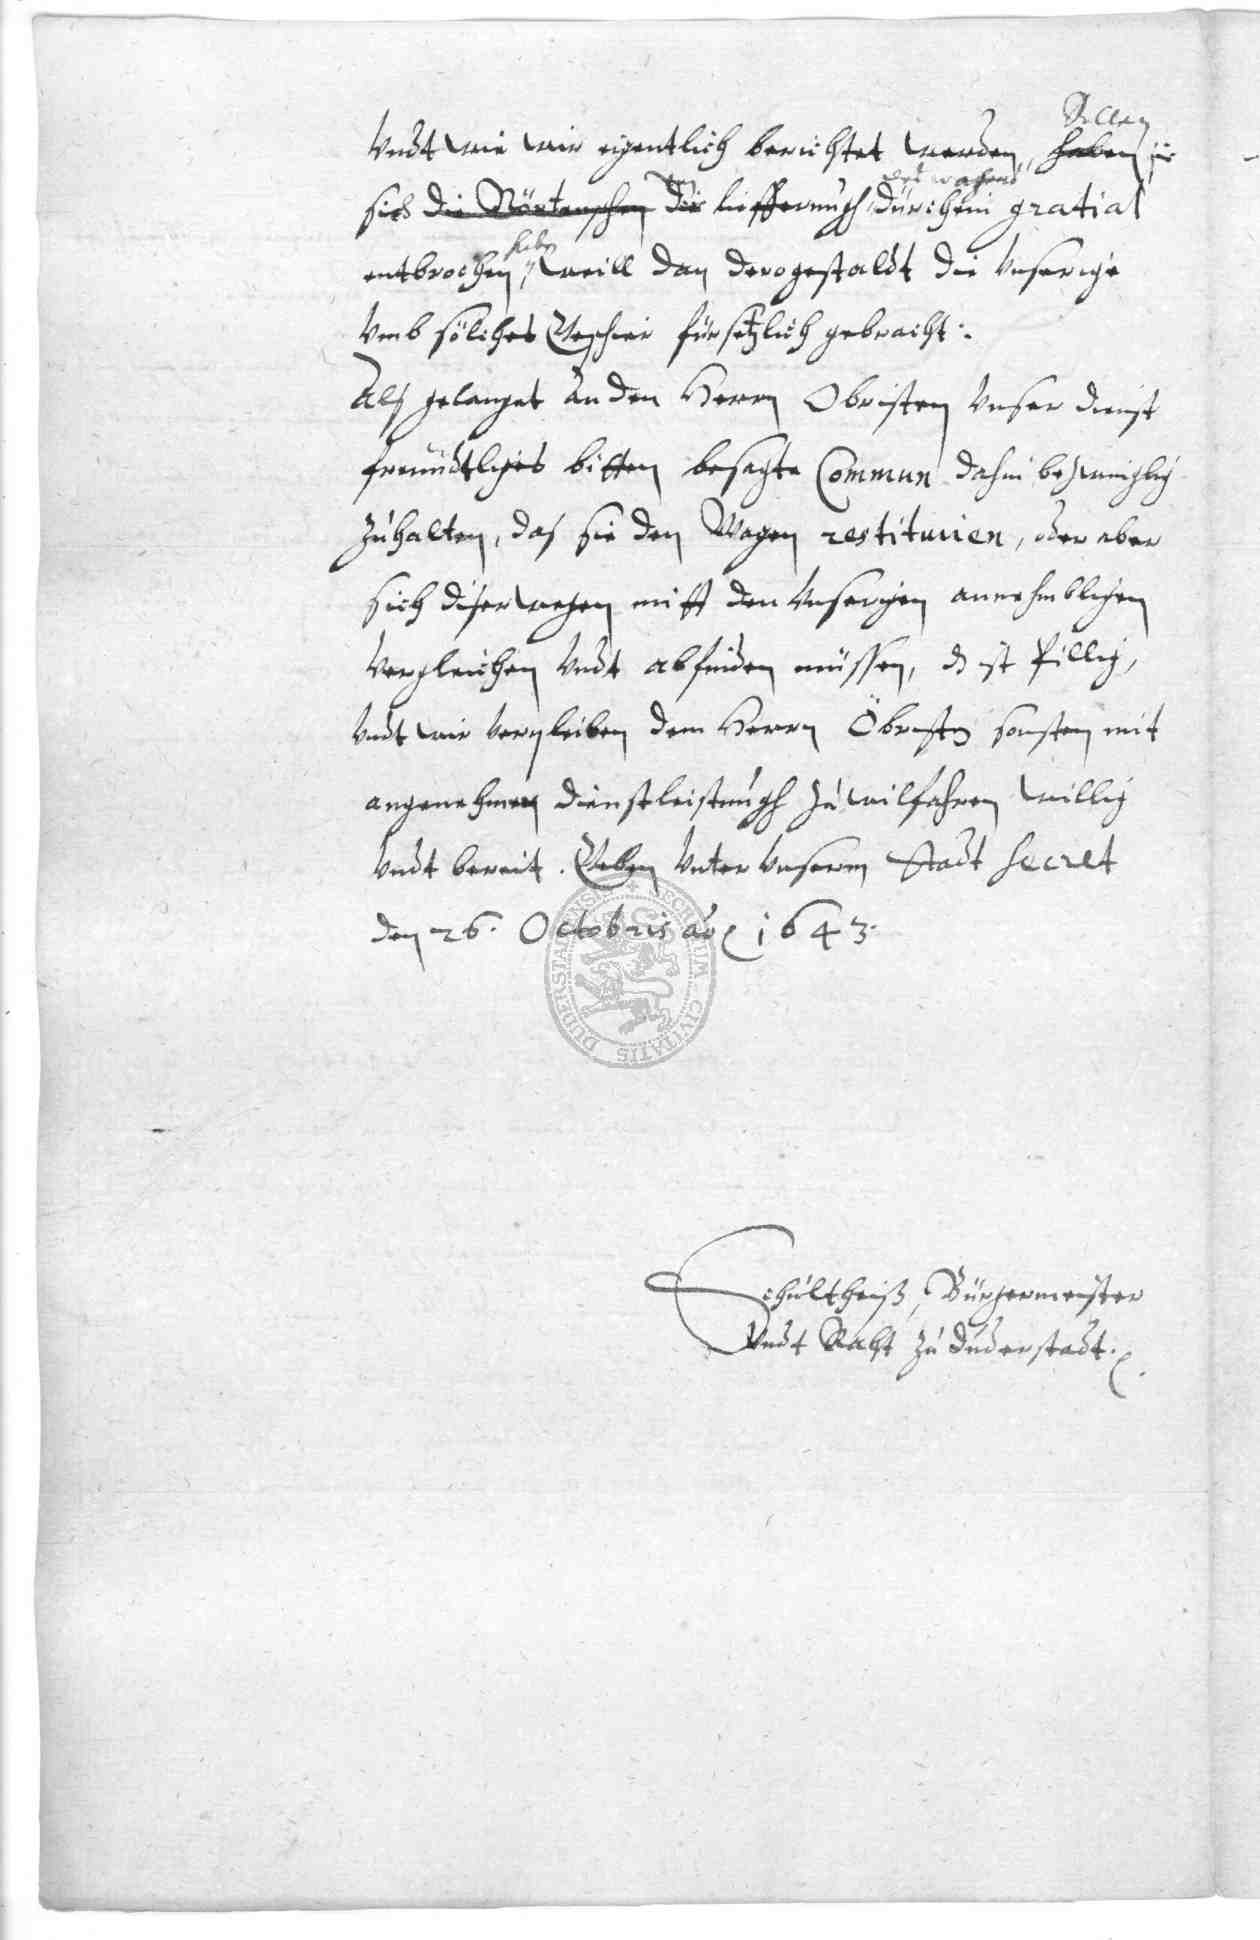 Sollen
Vndt wie wir eigentlich berichtet werden, haben sie
des wagens
sich die Nörtenschen der liefferungh durch ein gratial
haben
entbrochen, weill dan derogestaldt die Vnserige
Vmb solches Geschier fürsetzlich gebracht:
Alß gelanget an den Herrn Obristen Vnser dienst
freundtliches bitten besagte Commun dahin beweglich
zu halten, daß sie den Wagen restituiren, oder aber
sich dißerwegen mitt den Vnserigen annehmblichen
Vergleichen Vndt abfinden müssen, ist pillig,
Vndt wir Verpleiben dem Herrn Obristen sonsten mit
angenehmen dienstleistungh zu wilfahren willig
Vndt bereit. Geben Vnter Vnserm Stadt Secret
den 26. Octobris ao 1643.
SECRETUM CIVITATIS DUDERSTADENSIS
Schultheiß, Bürgermeister
Vndt Raht zu Duderstadt.